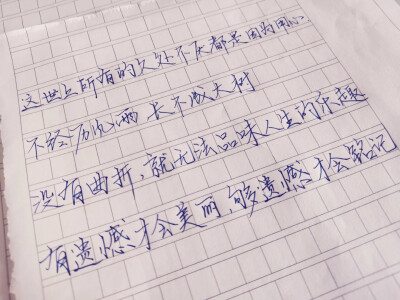 这世上所有的久处不厌都是因为用心
不经历风雨 长不成大树
没有曲折，就无法品味人生的乐趣
有遗憾才会美丽，够遗憾才会铭记